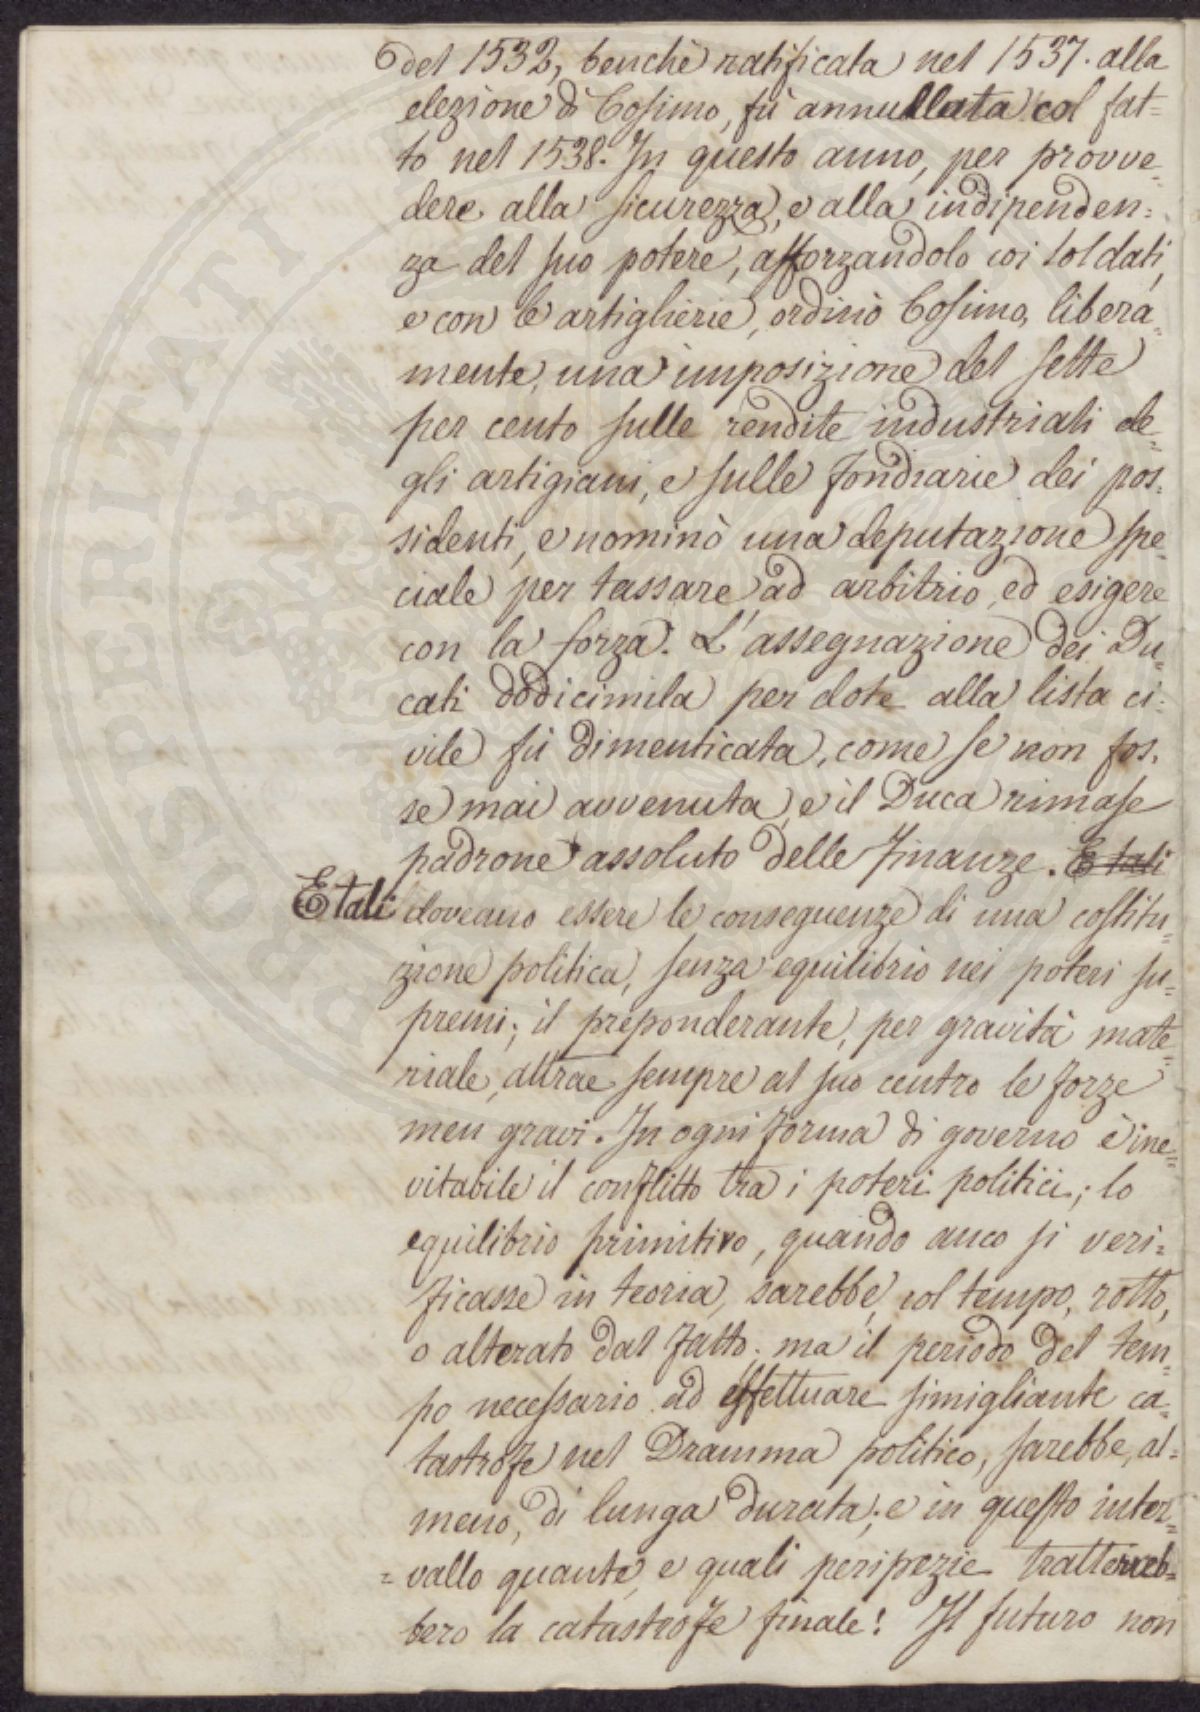 del 1532, benchè ratificata nel 1537. alla
elezione di Cosimo, fù annullata col fat=
to nel 1538. In questo anno, per provve=
dere alla sicurezza, e alla indipenden=
za del suo potere, afforzandolo coi soldati,
e con le artiglierie, ordinò Cosimo, libera=
mente, una imposizione del sette
per cento sulle rendite industriali de=
gli artigiani, e sulle fondiarie dei pos=
sidenti, e nominò una deputazione spe=
ciale per tassare ad arbitrio, ed esigere
con la forza. L'assegnazione dei Du=
cati dodicimila per dote alla lista ci=
vile fù dimenticata, come se non fos=
se mai avvenuta, e il Duca rimase
padrone assoluto delle Finanze. E tali
E tali doveano essere le conseguenze di una costitu=
zione politica, senza equilibrio nei poteri su=
premi; il preponderante, per gravità mate=
riale, attrae sempre al suo centro le forze
men gravi. In ogni forma di governo è ine=
vitabile il conflitto tra i poteri politici; lo
equilibrio primitivo, quando anco si veri=
ficasse in teoria, sarebbe, col tempo, rotto,
o alterato dal fatto; ma il periodo del tem=
po necessario ad effettuare simigliante ca=
tastrofe nel Dramma politico, sarebbe, al=
meno, di lunga durata; e in questo inter=
=vallo quante, e quali peripezie tratterreb=
bero la catastrofe finale! Il futuro non
PROSPERITATI